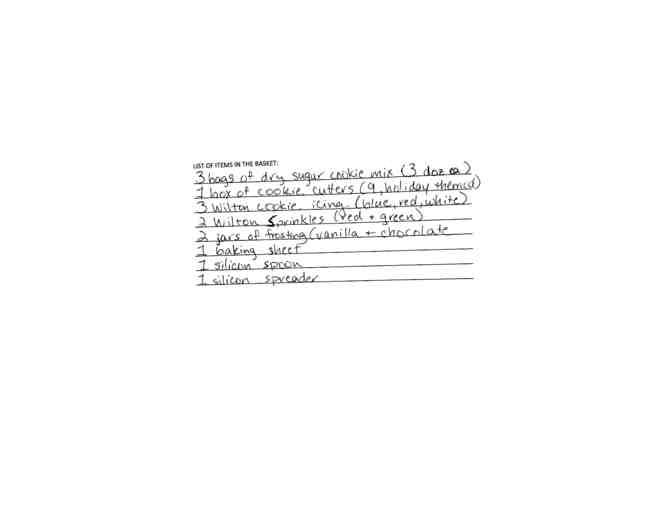 LIST OF ITEMS IN THE BASKET:
3 bags of dry sugar cookie mix (3 doz ea)
1 box of cookie cutters (9, holiday themed)
3 Wilton cookie icing (blue, red, white)
2 Wilton Sprinkles (red + green)
2 jars of frosting (vanilla + chocolate
1 baking sheet
1 silicon spoon
1 silicon spreader